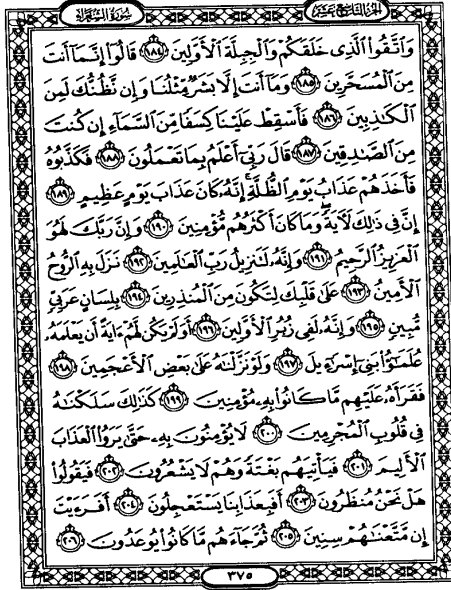 الجزء التاسع عشر
سورة الشعراء
وَاتَّقُوا الَّذِي خَلَقَكُمْ وَالْجِبِلَّةَ الْأَوَّلِينَ ١٨٤ قَالُوا إِنَّمَا أَنتَ
مِنَ الْمُسَحَّرِينَ ١٨٥ وَمَا أَنتَ إِلَّا بَشَرٌ مِّثْلُنَا وَإِن نَّظُنُّكَ لَمِنَ
الْكَٰذِبِينَ ١٨٦ فَأَسْقِطْ عَلَيْنَا كِسَفًا مِّنَ السَّمَاءِ إِن كُنتَ
مِنَ الصَّٰدِقِينَ ١٨٧ قَالَ رَبِّي أَعْلَمُ بِمَا تَعْمَلُونَ ١٨٨ فَكَذَّبُوهُ
فَأَخَذَهُمْ عَذَابُ يَوْمِ الظُّلَّةِ إِنَّهُ كَانَ عَذَابَ يَوْمٍ عَظِيمٍ ١٨٩
إِنَّ فِي ذَٰلِكَ لَآيَةً وَمَا كَانَ أَكْثَرُهُم مُّؤْمِنِينَ ١٩٠ وَإِنَّ رَبَّكَ لَهُوَ
الْعَزِيزُ الرَّحِيمُ ١٩١ وَإِنَّهُ لَتَنزِيلُ رَبِّ الْعَالَمِينَ ١٩٢ نَزَلَ بِهِ الرُّوحُ
الْأَمِينُ ١٩٣ عَلَىٰ قَلْبِكَ لِتَكُونَ مِنَ الْمُنذِرِينَ ١٩٤ بِلِسَانٍ عَرَبِيٍّ
مُّبِينٍ ١٩٥ وَإِنَّهُ لَفِي زُبُرِ الْأَوَّلِينَ ١٩٦ أَوَلَمْ يَكُن لَّهُمْ ءَايَةً أَن يَعْلَمَهُ
عُلَمَٰؤُا بَنِي إِسْرَٰءِيلَ ١٩٧ وَلَوْ نَزَّلْنَٰهُ عَلَىٰ بَعْضِ الْأَعْجَمِينَ ١٩٨
فَقَرَأَهُ عَلَيْهِم مَّا كَانُوا بِهِ مُؤْمِنِينَ ١٩٩ كَذَٰلِكَ سَلَكْنَٰهُ
فِي قُلُوبِ الْمُجْرِمِينَ ٢٠٠ لَا يُؤْمِنُونَ بِهِ حَتَّىٰ يَرَوُا الْعَذَابَ
الْأَلِيمَ ٢٠١ فَيَأْتِيَهُم بَغْتَةً وَهُمْ لَا يَشْعُرُونَ ٢٠٢ فَيَقُولُوا
هَلْ نَحْنُ مُنظَرُونَ ٢٠٣ أَفَبِعَذَابِنَا يَسْتَعْجِلُونَ ٢٠٤ أَفَرَءَيْتَ
إِن مَّتَّعْنَٰهُمْ سِنِينَ ٢٠٥ ثُمَّ جَاءَهُم مَّا كَانُوا يُوعَدُونَ ٢٠٦
٣٧٥